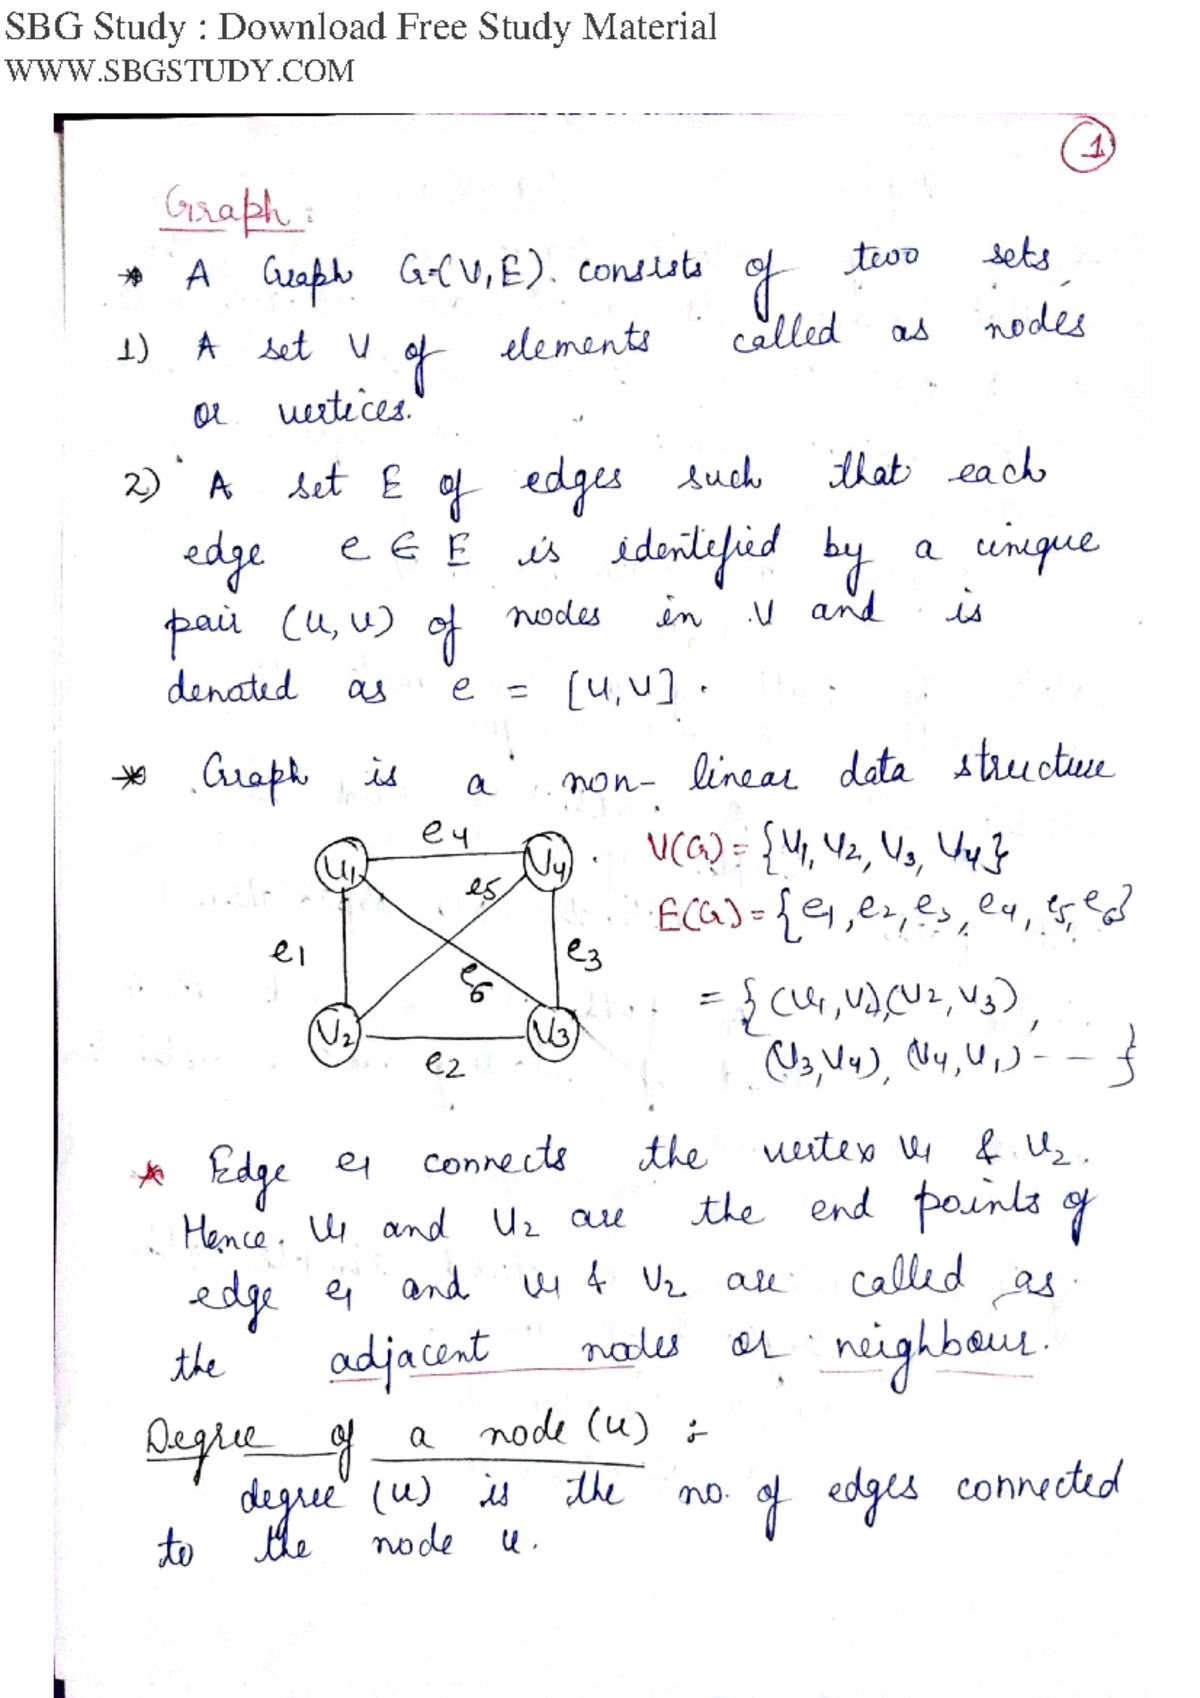 SBG Study : Download Free Study Material
WWW.SBGSTUDY.COM
1
Graph :
* A Graph G=(V,E). consists of two sets,
1) A set V of elements called as nodes
or vertices.
2) A set E of edges such that each
edge e ∈ E is identified by a unique
pair (u, v) of nodes in V and is
denated as e = [u,v].
* Graph is a non- linear data structure
e4
V1
V4
e5
e1
e3
e6
V2
V3
e2
V(G) = {V1, V2, V3, V4}
E(G) = {e1, e2, e3, e4, e5, e6}
= {(V1, V2),(V2, V3),
(V3, V4), (V4, V1) - - }
* Edge e1 connects the vertex V1 & V2.
Hence. V1 and V2 are the end points of
edge e1 and V1 & V2 are called as
the adjacent nodes or neighbour.
Degree of a node (u) :-
degree (u) is the no. of edges connected
to the node u.